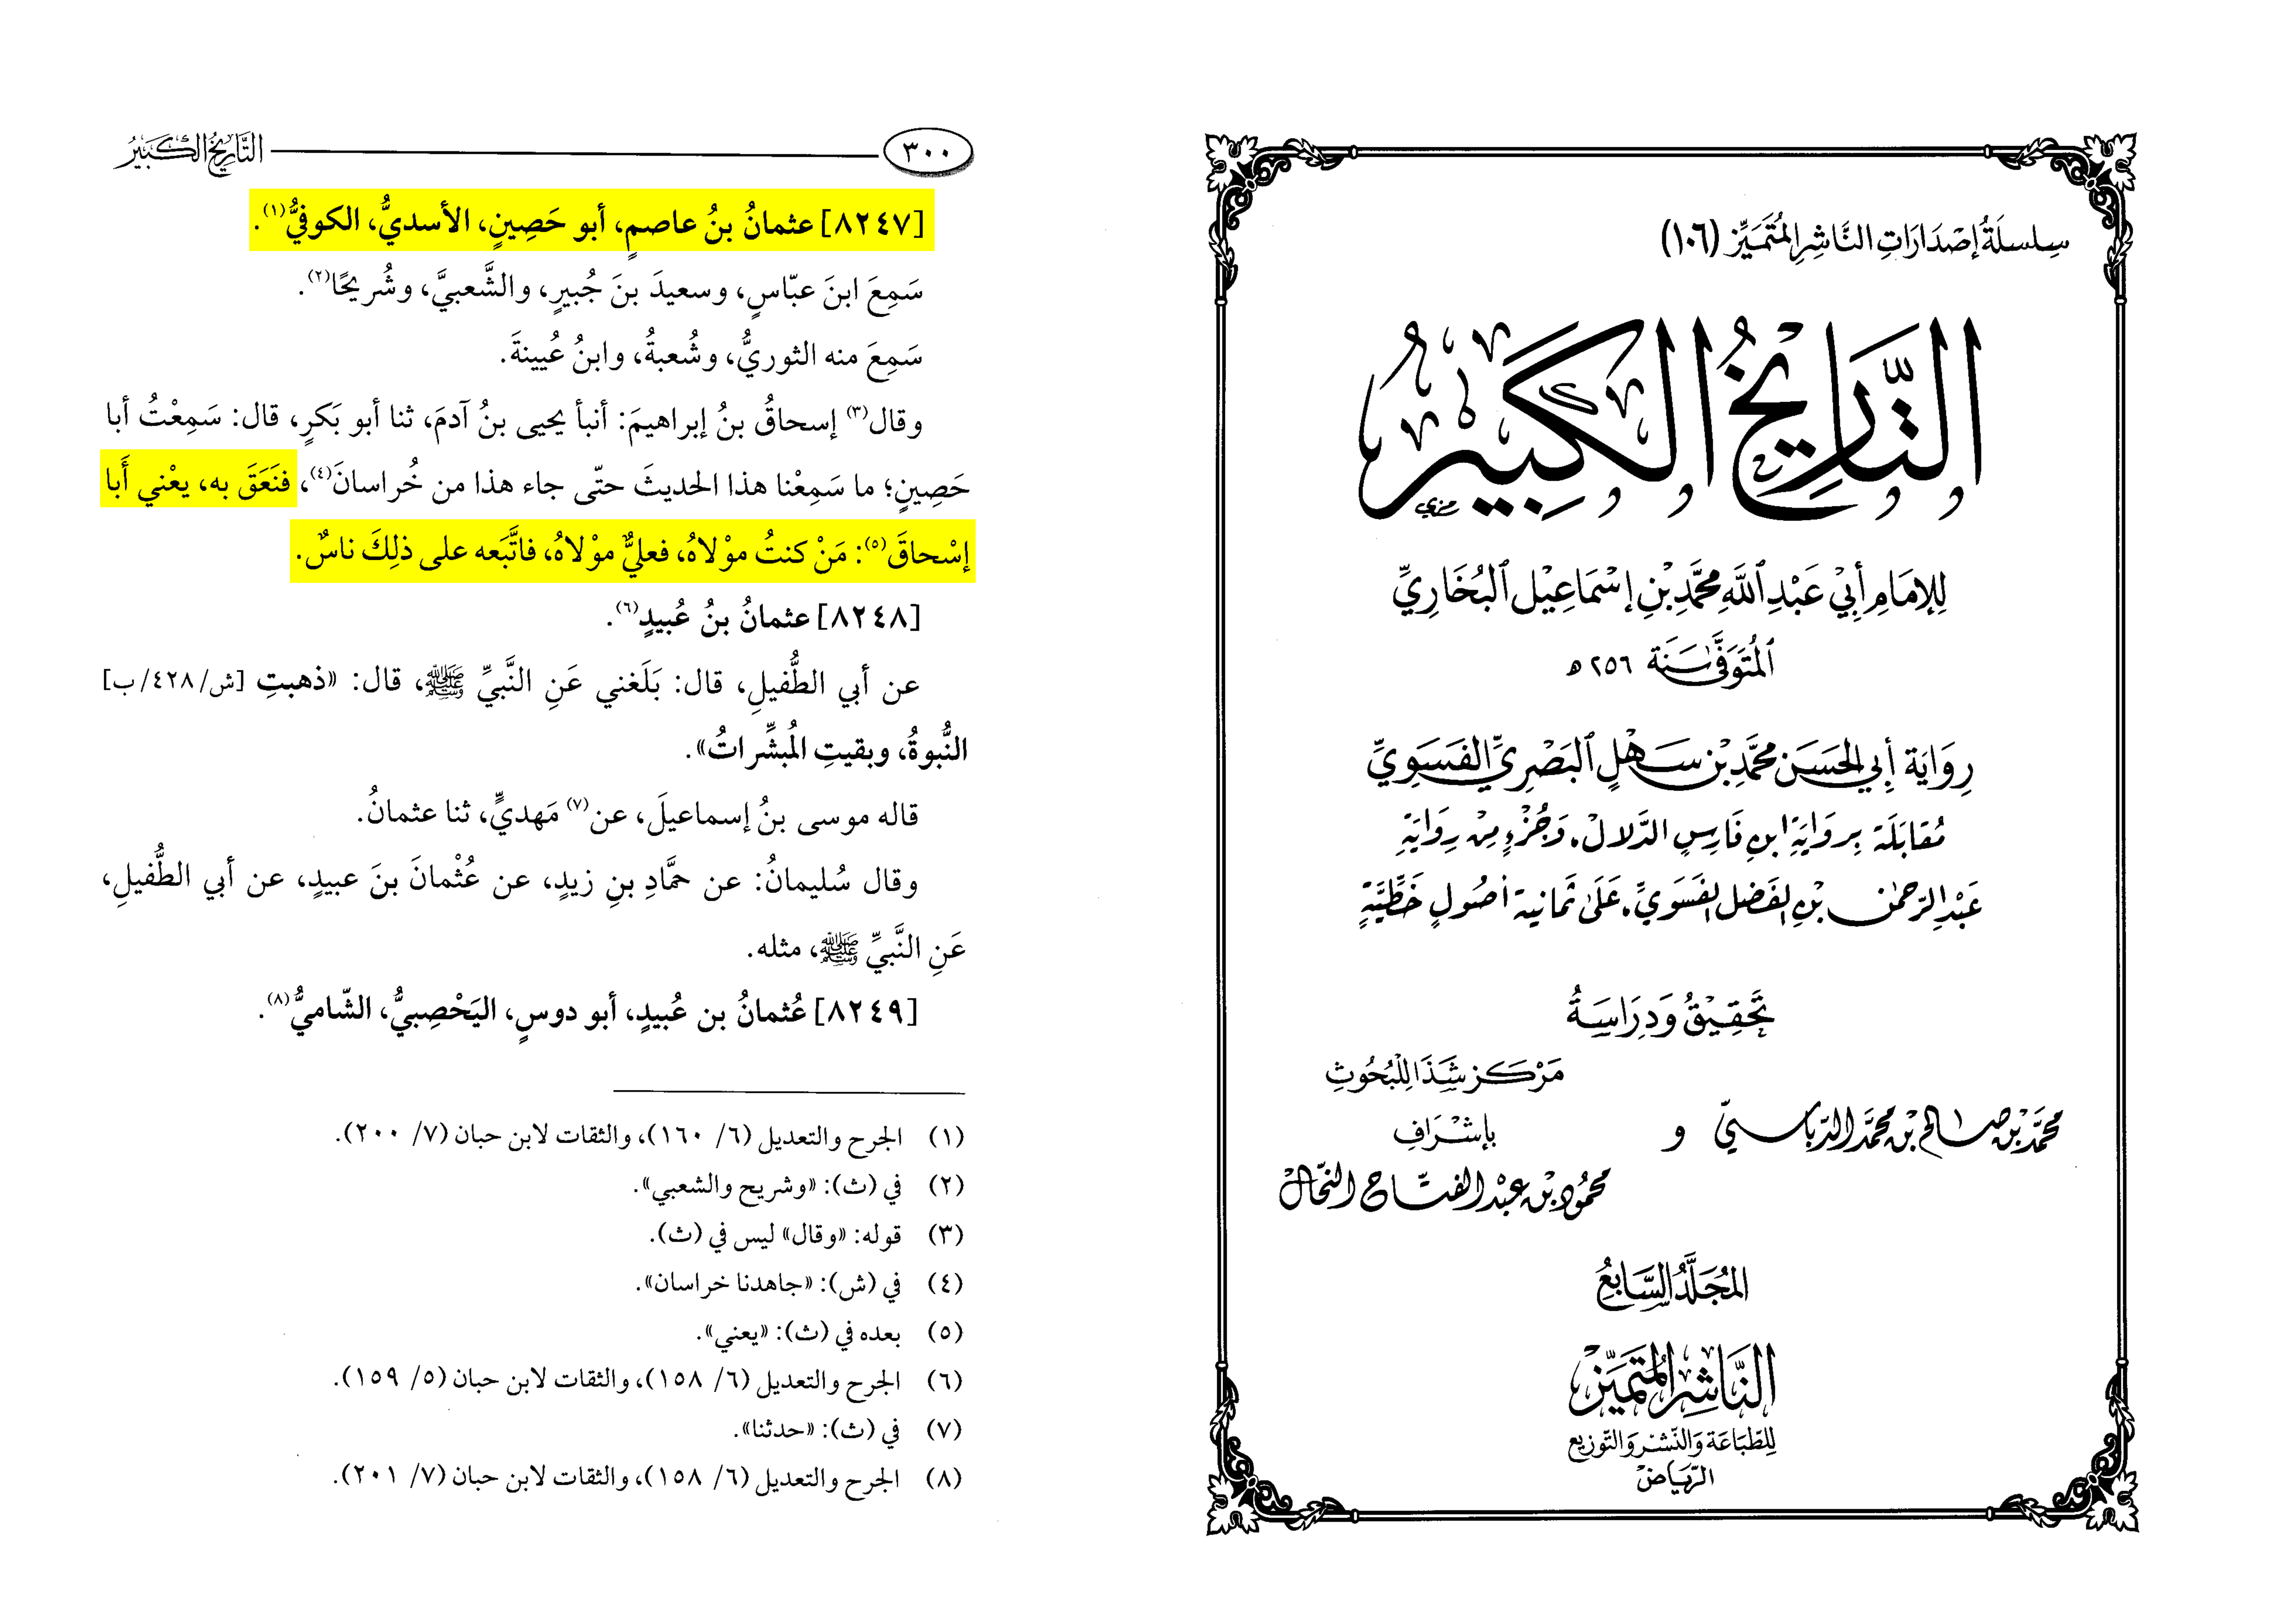 سِلسلَةُ إصْدَارَاتِ النَّاشِرِ المُتَمَيِّز (١٠٦)
التَّارِيخُ الكَبِيرُ
لِلإمَامِ أَبِيْ عَبْدِ ٱللَّهِ مُحَمَّدِ بْنِ إِسْمَاعِيْل ٱلبُخَارِيِّ
ٱلمُتَوَفَّىٰ سَنَة ٢٥٦ ه
رِوَايَة أَبِي الحَسَن مُحَمَّدِ بْن سَهْلٍ ٱلبَصْرِيِّ الفَسَوِيِّ
مُقَابَلَة بِرِوَايَةِ ابنِ فَارِسٍ الدَّلَالْ، وَجُزْءٍ مِنْ رِوَايَةِ
عَبْدِ الرَّحمٰن بْنِ الفَضْل الفَسَوِيِّ، عَلَىٰ ثَمَانِيَة أُصُولٍ خَطِّيَّةٍ
تَحْقِيْقُ وَدِرَاسَةُ
محمَّد بْن صَالح بْن محمَّد الدّبَاسيّ و مَرْكَز شَذَا لِلْبُحُوثِ
بإشْرَافِ
محمُود بْن عَبْد الفتّاح النحّال
المُجَلَّدُ السَّابِعُ
النَّاشِر المُتَمَيِّز
لِلطِّبَاعَة وَالنَّشْر وَالتَّوزِيع
الرِّيَاضْ
٣٠٠ التَّارِيخُ الكَبِيرُ
[٨٢٤٧] عثمانُ بنُ عاصمٍ، أبو حَصِينٍ، الأسديُّ، الكوفيُّ(١).
سَمِعَ ابنَ عبّاسٍ، وسعيدَ بنَ جُبيرٍ، والشَّعبيَّ، وشُريحًا(٢).
سَمِعَ منه الثوريُّ، وشُعبةُ، وابنُ عُيينةَ.
وقال(٣) إسحاقُ بنُ إبراهيمَ: أنبأ يحيى بنُ آدمَ، ثنا أبو بَكرٍ، قال: سَمِعْتُ أبا
حَصِينٍ؛ ما سَمِعْنا هذا الحديثَ حتّى جاء هذا من خُراسانَ(٤)، فنَعَقَ به، يعْني أَبا
إسْحاقَ(٥): مَنْ كنتُ موْلاهُ، فعليٌّ موْلاهُ، فاتَّبَعه على ذلِكَ ناسٌ.
[٨٢٤٨] عثمانُ بنُ عُبيدٍ(٦).
عن أبي الطُّفيلِ، قال: بَلَغني عَنِ النَّبيِّ ﷺ، قال: «ذهبتِ [ش/٤٢٨/ب]
النُّبوةُ، وبقيتِ المُبشِّراتُ».
قاله موسى بنُ إسماعيلَ، عن(٧) مَهديٍّ، ثنا عثمانُ.
وقال سُليمانُ: عن حمَّادِ بنِ زيدٍ، عن عُثْمانَ بنَ عبيدٍ، عن أبي الطُّفيلِ،
عَنِ النَّبيِّ ﷺ، مثله.
[٨٢٤٩] عُثمانُ بن عُبيدٍ، أبو دوسٍ، اليَحْصِبيُّ، الشّاميُّ(٨).
(١) الجرح والتعديل (٦/ ١٦٠)، والثقات لابن حبان (٧/ ٢٠٠).
(٢) في (ث): «وشريح والشعبي».
(٣) قوله: «وقال» ليس في (ث).
(٤) في (ش): «جاهدنا خراسان».
(٥) بعده في (ث): «يعني».
(٦) الجرح والتعديل (٦/ ١٥٨)، والثقات لابن حبان (٥/ ١٥٩).
(٧) في (ث): «حدثنا».
(٨) الجرح والتعديل (٦/ ١٥٨)، والثقات لابن حبان (٧/ ٢٠١).